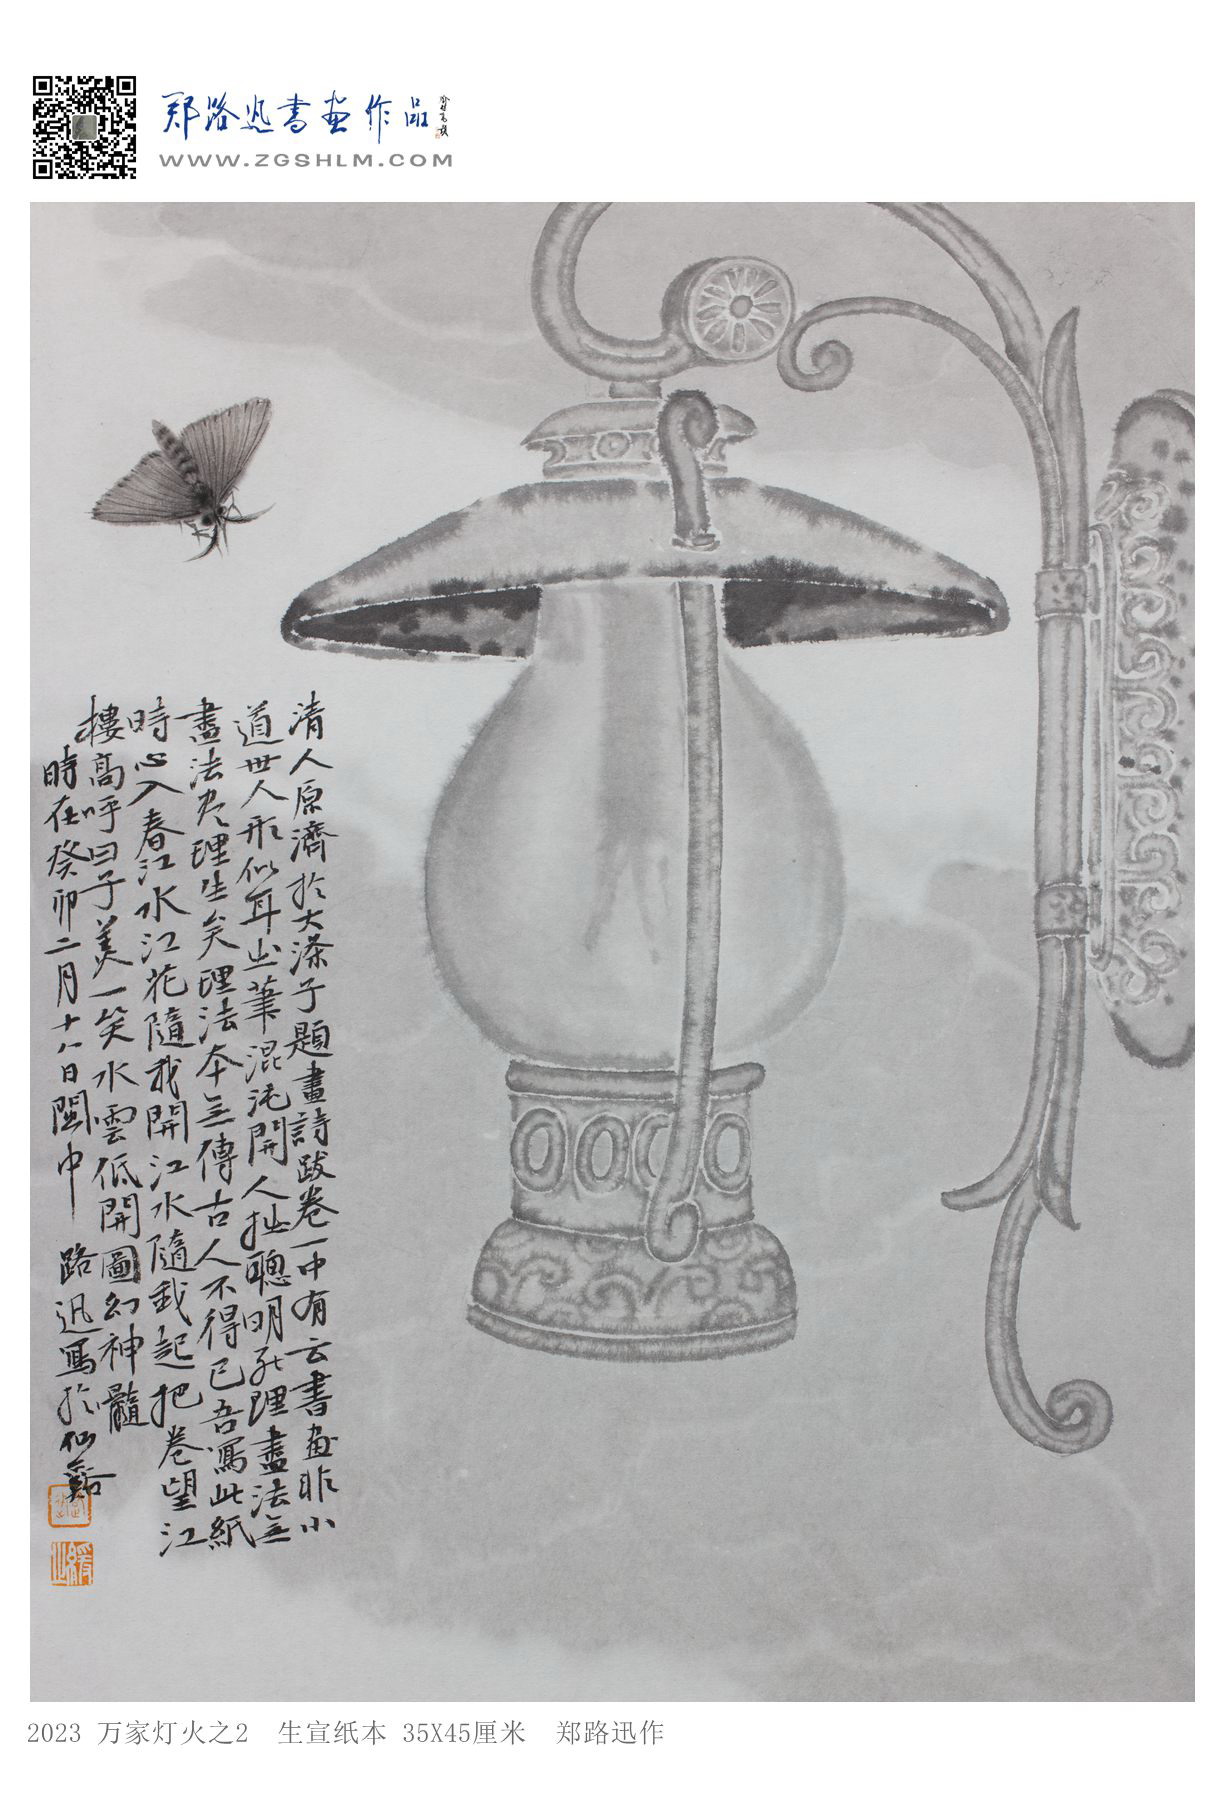 郑路迅書画作品
WWW.ZGSHLM.COM
清人原濟於大滌子題畫詩跋卷一中有云書画非小
道世人形似耳出筆混沌開人拙聰明死理盡法無
盡法尽理生矣理法本無傳古人不得已吾寫此紙
時心入春江水江花隨我開江水隨我起把卷望江
樓高呼曰子美一笑水雲低開圖幻神髓
時在癸卯二月十八日閩中 路迅寫於仙谿
2023 万家灯火之2 生宣纸本 35X45厘米 郑路迅作